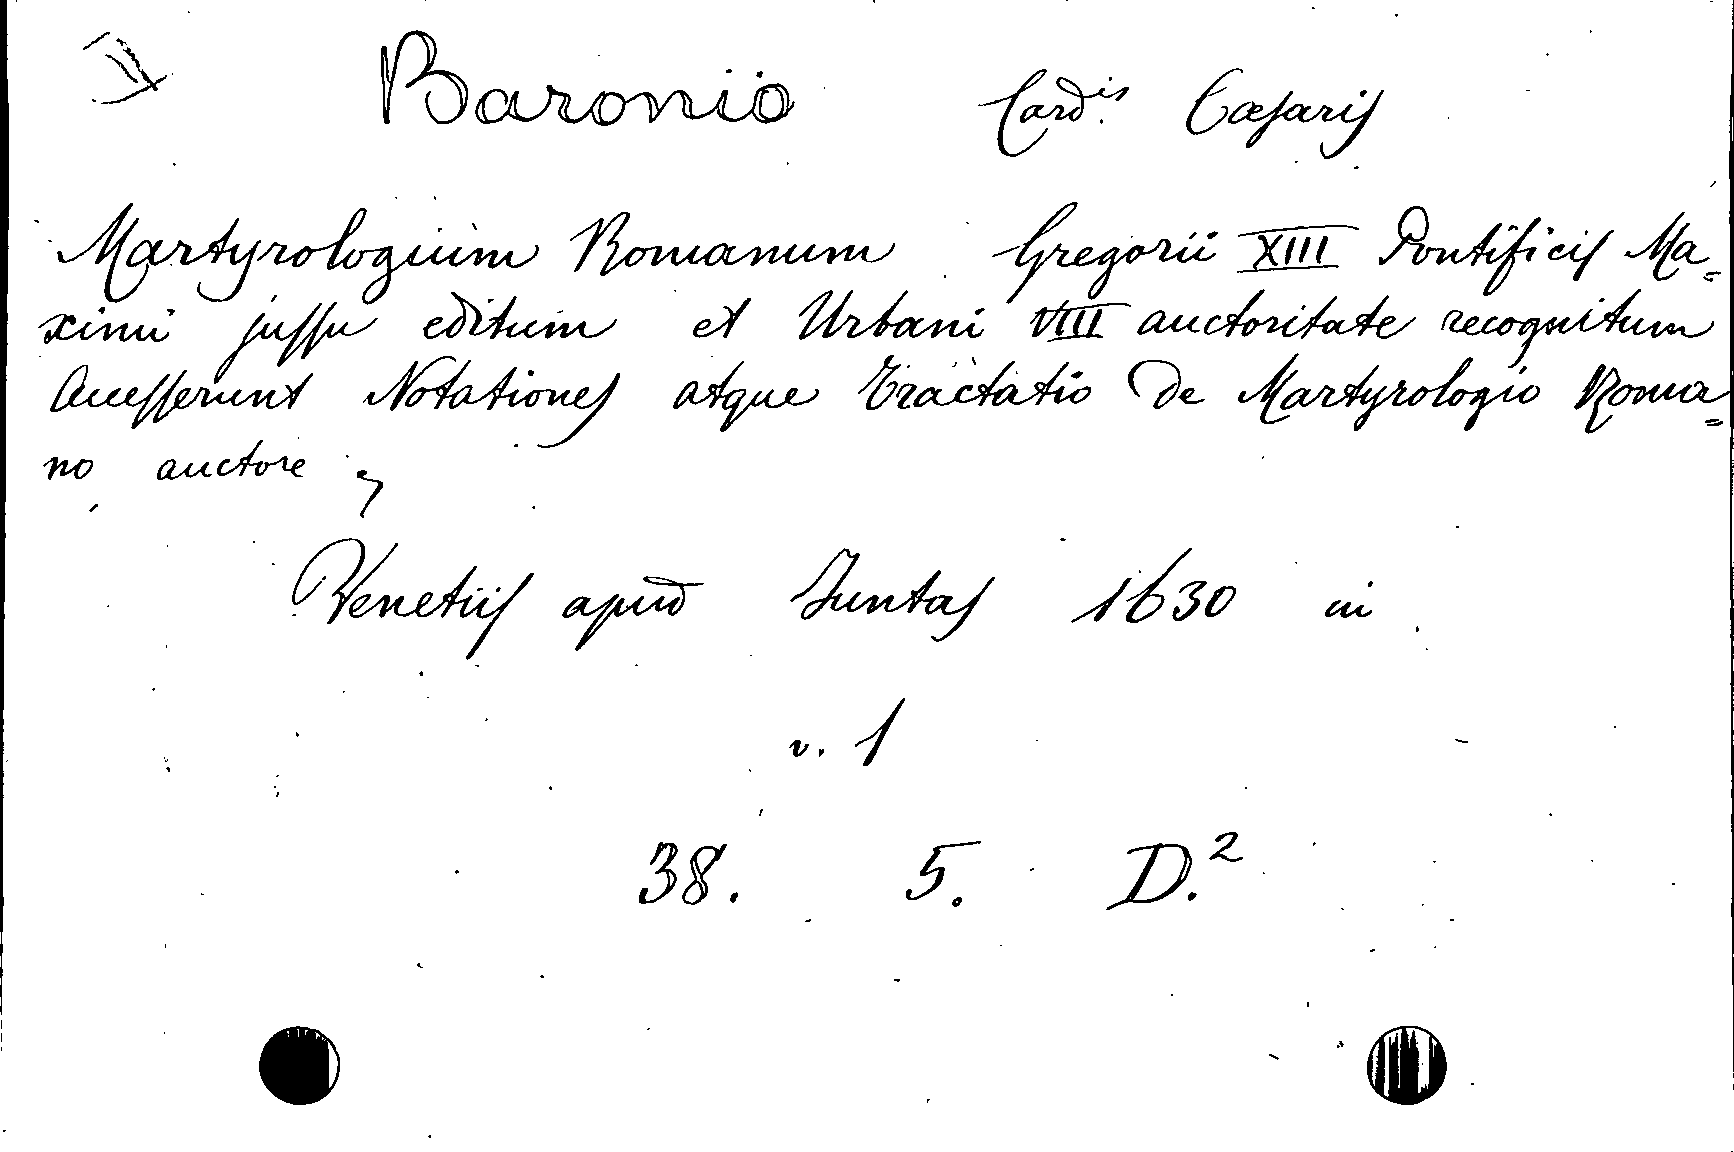 Baronio Card.is Cæsaris
Martyrologium Romanum Gregorii XIII Pontificis Ma=
ximi jussu editum et Urbani VIII auctoritate recognitum
Accesserunt Notationes atque Tractatio de Martyrologio Roma=
no auctore
Venetiis apud Juntas 1630 in
v. 1
38. 5. D.2